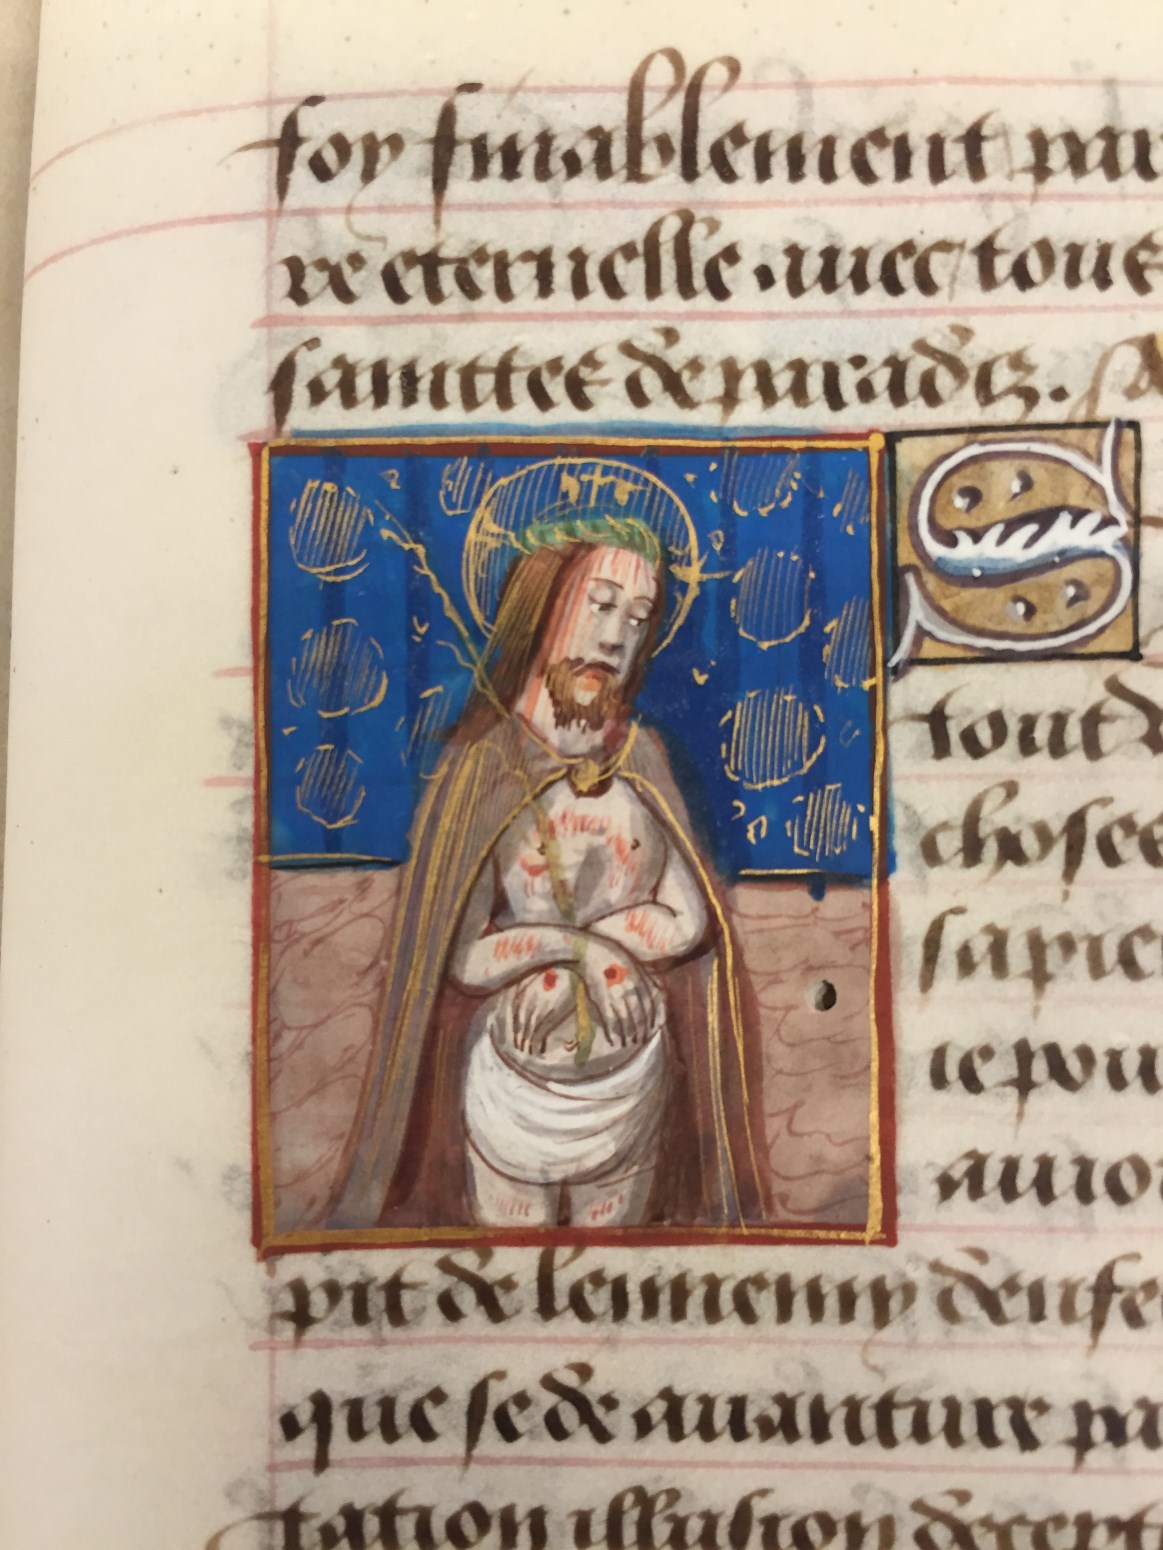 foy finablement par
re eternelle · avec tous
sainttes de paradis. A
S
tout d
choses
sapie
ie pou
avio
pit de lennemy denfe
que se de avanture pa
tation illusion decept